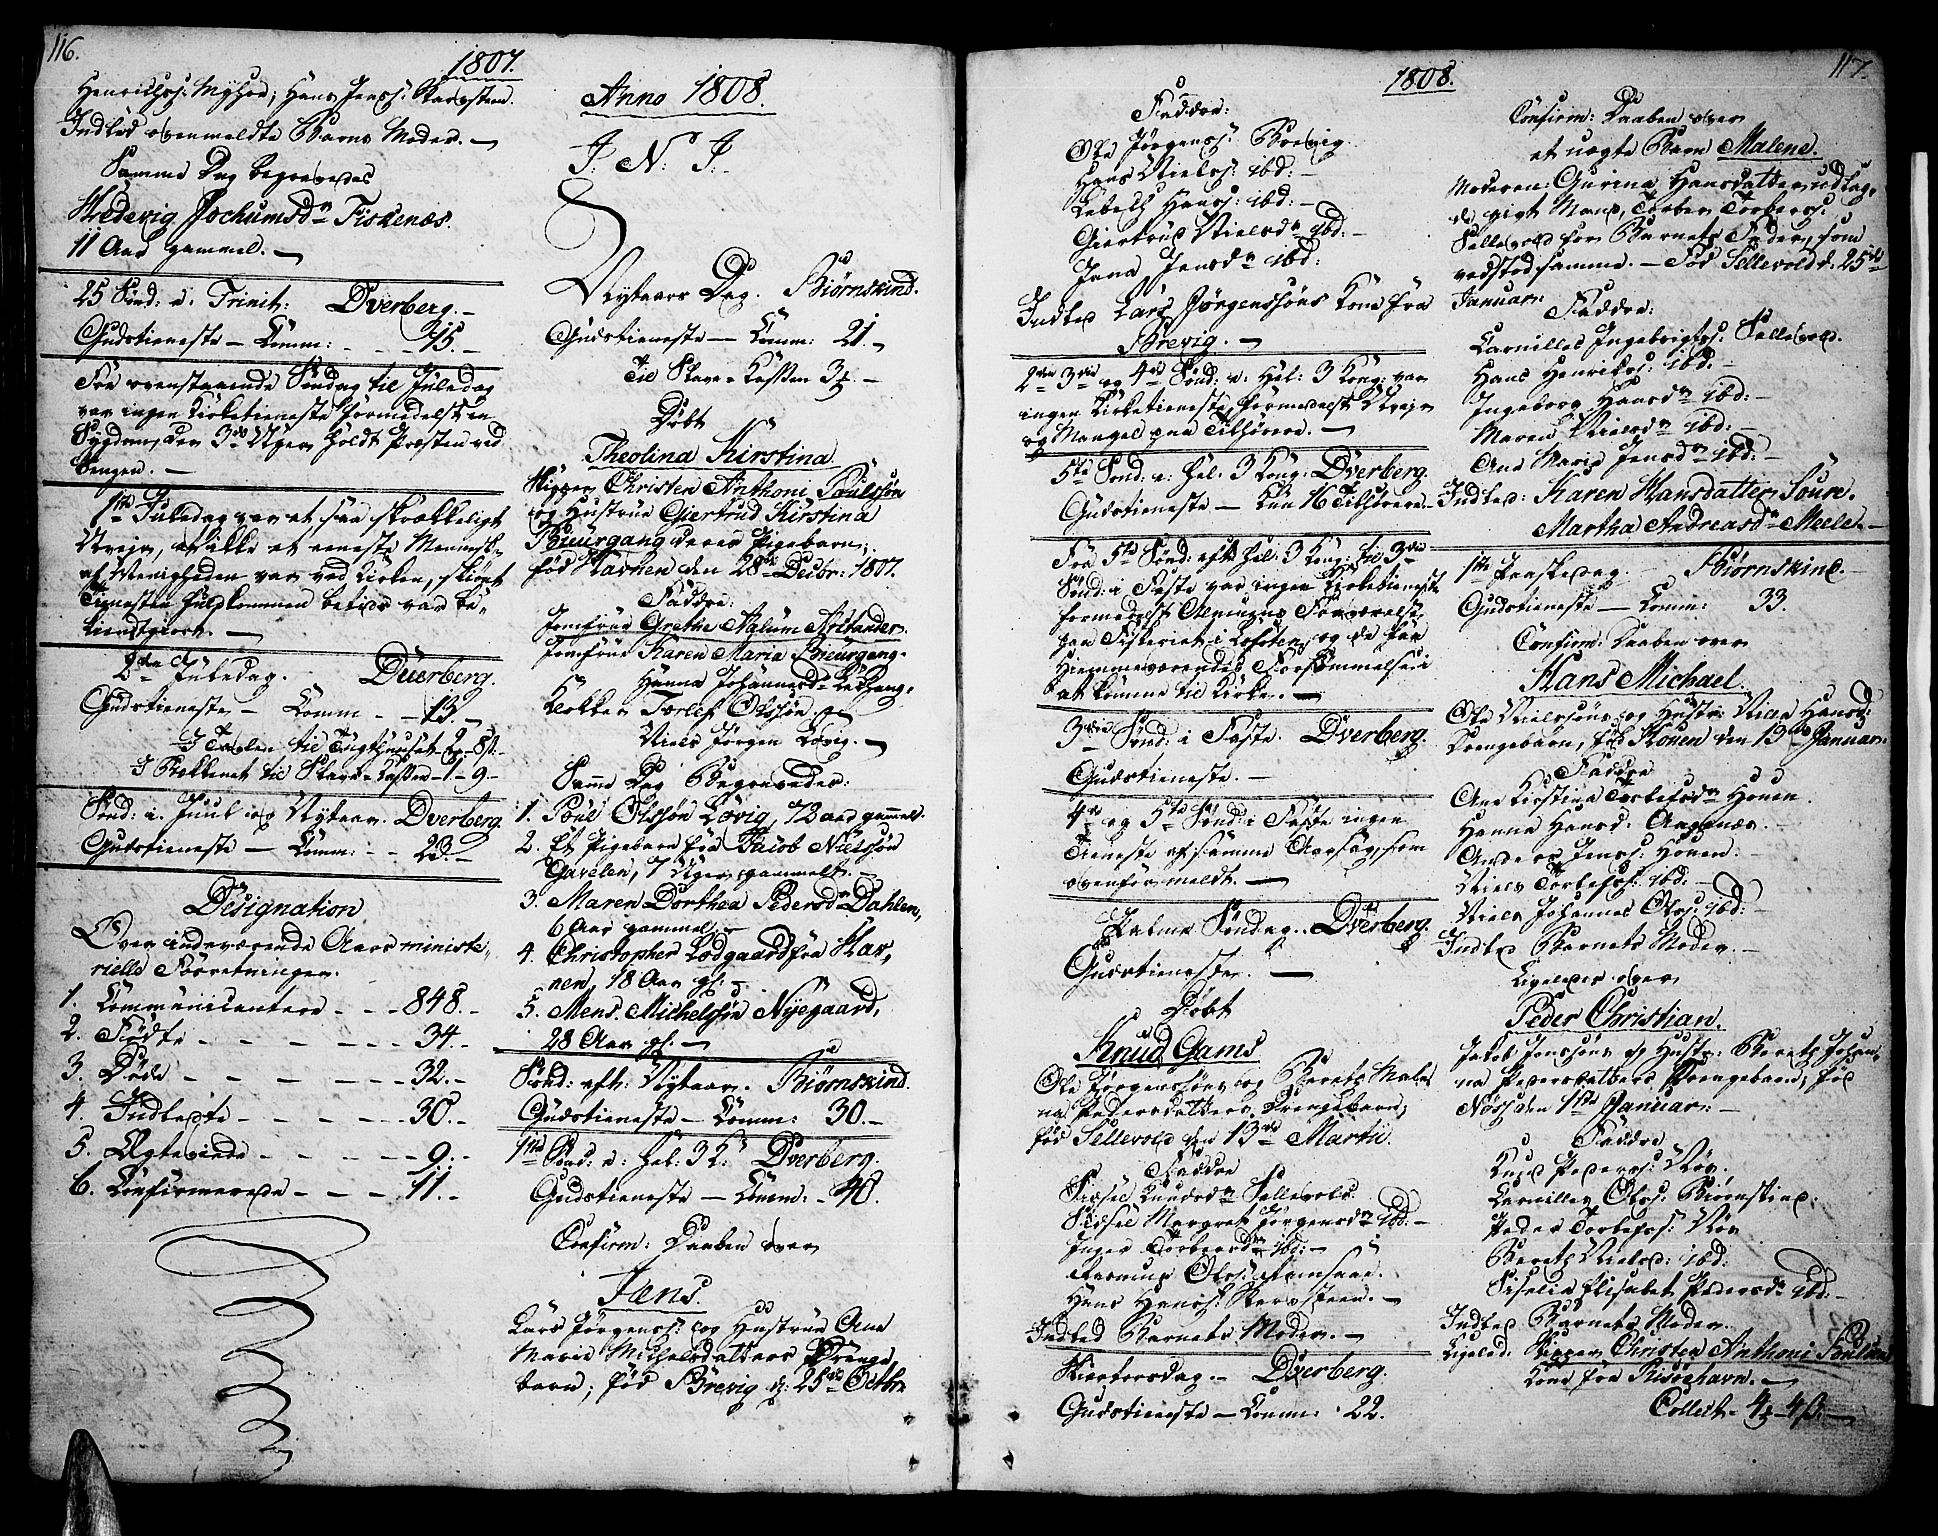 116.
1807.
Henrichs: Myhre; Hans Jens: Skarsteen.
Indled ovenmeldte Barns Moder. —
Samme Dag begravedes
Hedevig Jochumsdr Fiskenæs.
11 Aar gammel. —
25 Sønd: e. Trinit: Dverberg. —
Gudstieneste — Comm: - - - 15. —
Fra ovenstaaende Søndag til Juledag
var ingen Kirketieneste formedelst en
Sygdom, der 3de Uger holdt Præsten ved
Sengen. —
1ste Juledag var et saa skrækkeligt
Uveir, at ikke et eneste Menneske
af Menigheden var ved Kirken, skiønt
Tienesten fuldkommen betids var be-
kiendtgiort. —
2den Juledag. Dverberg.
Gudstieneste — Comm - - 13. —
I Tavlen til Tugthuuset
I Bekkenet til Slave-Cassen - 1 - 9 -
Sønd: i. Juul og Nytaar. Dverberg.
Gudstieneste — Comm: - - 23. —
Designation
Over indeværende Aars ministe-
rielle Forretninger.
1. Communicantere - - - 848. -
2. Fødte - - - - - 34. -
3. Døde - - - - - 32. -
4. Indledte - - - - - 30. -
5. Ægteviede - - - - - 9. -
6. Confirmerede - - - - 11. -
Anno 1808.
J. N. J. -
Nytaars Dag. Biørnskind.
Gudstieneste — Comm: 21. -
Til Slave-Cassen 3
Døbt
Theolina Kirstina
Skipper Christen Anthoni Poulssøn
og Hustrue Giertrud Kirstina
Brieurgang deres Pigebarn,
fød Havnen den 28de Decbr: 1807.
Faddre:
Jomfrue Grethe Nalum Arilander.
Jomfrue Karen Maria Brieurgang.
Hanna Johannesdr
Klokker Torlef Olssøn, og
Niels Jørgen Lovig. —
Samme Dag Begravedes:
1. Poul Olssøn Lovig, 72 aar gammel.
2. Et Pigebarn fra Jacob Nielssøn
Gavelen, 7 Uger gammelt. -
3. Maren Dorthea Pedersdr Dahlen,
6 Aar gammel. -
4. Christopher Lodgaard fra Hav-
nen, 18 Aar gl: -
5. Mens. Michelssøn Nyegaard,
28 Aar gl: —
Sønd: eft: Nytaar. Biørnskind.
Gudstieneste — Comm: 30. -
1ste Sønd: e: Hel: 3 K: Dverberg.
Gudstieneste — Comm: - 40.
Confirm: Daaben over
Jens.
Lars Jørgens: og Hustrue Ane
Marie Michelsdatters Drenge-
barn, fød Brevig d: 25de Octbr.
1808.
117.
Faddre:
Ole Jørgens: Brevig.
Hans Niels: ibd: -
Hans: ibd: -
Giertrud Nielsdr ibd: -
Jensdr ibd:
Indled Lars Jørgenssøns Kone fra
Brevig. —
2den 3die og 4de Sønd: e. Hel: 3 Kong: var
ingen Kirketieneste formedelst Uveir
og Mangel paa Tilhørere. —
5te Sønd: e: Hel: 3 Kong: Dverberg.
Gudstieneste — kun 16 Tilhørere. -
Fra 5te Sønd: eft: Hel: 3 Kong: til 3die
Sønd: i Faste var ingen Kirketieneste
formedelst Almuens Fraværelse
paa Fiskeriet i Lofoten, og de faa
Hiemmeværendes Forsømmelse i
at komme til Kirke. —
3die Sønd: i Faste. Dverberg.
Gudstieneste. —
4de og 5te Sønd: i Faste ingen
Tieneste af samme Aarsag, som
ovenfor meldt. —
Palme Søndag. Dverberg.
Gudstieneste. —
Døbt
Knud Gams
Ole Jørgenssøns og Bereth Male-
na Pedersdatters Drengebarn,
fød Sellevold den 13de Martii.
Faddre
Sidsel Knudsdr Sellevold.
Sidsel Margret Jørgensdr ibd: -
Inger Torbersdr ibd: -
Rasmus Ols:
Hans Hans: Skarsteen. -
Indled Barnets Moder. —
Skiertorsdag. - Dverberg.
Gudstieneste — Comm: 22.
Confirm: Daaben over
et uægte Barn Malene.
Moderen: Gurina Hansdatter udlag-
de gift Mand, Torber Torbers:
Sellevold for Barnets Fader, som
vedstod samme. - Fød Sellevold d. 25de
Januar:
Faddre:
Cornilles Ingebrigts: Sellevold.
Hans Henriks: ibd: -
Ingeborg Hansdr ibd: -
Maren Nielsdr ibd: -
Ane Marie Jensdr ibd: -
Indled: Karen Hansdatter Soure.
Martha Andreasdr Meele. -
1ste Paaskedag. Biørnskind. -
Gudstieneste — Comm: 33.
Confirm: Daaben over
Hans Michael.
Ole Nielssøns og Hustr: Hansd:
Drengebarn, fød Houen den 19de Januar:
Faddre
Ane Kirstina Torlefsdr Houen.
Hanna Hansd:
Anders Jens: Houen. -
Niels Torlefs: ibd: -
Niels Johannes Ols: ibd: -
Indled Barnets Moder. -
Ligeledes over
Peder Christian.
Jakob Jenssøns og Hustr: Bereth Johan-
na Pedersdatters Drengebarn, fød
Nøss den 1ste Januar: -
Faddre
Knud Peders: Nøss.
Cornilles Ols: Biørnskind.
Peder Torlefs: Nøss
Bereth Nielsd: ibd:
Siselia Elisabet Pedersdr ibd: -
Indled Barnets Moder.
Ligeled: Skipper Christen Anthoni Poulsøns
Kone fra Risøehavn. —
Collect - 4